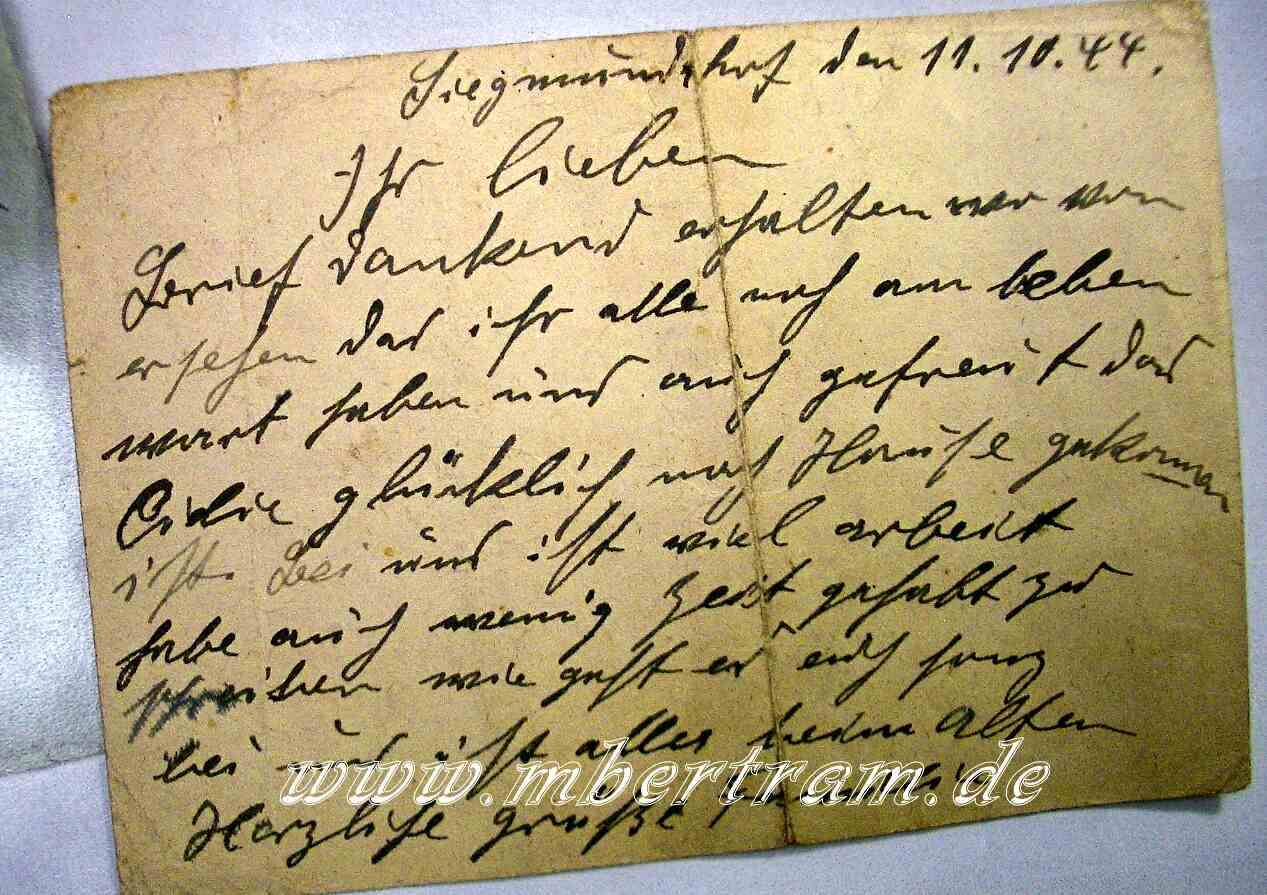 Siegmundshof den 11.10.44.
Ihr lieben
Brief dankend erhalten wo von
ersehen das ihr alle noch am leben
wart haben uns auch gefreut das
glücklich nach Hause gekomen
ist. Bei uns ist viel arbeit
habe auch wenig Zeit gehabt zu
schreiben wie geht es euch sonz
bei uns ist alles beim alten
Herzliche grüße
www.mbertram.de